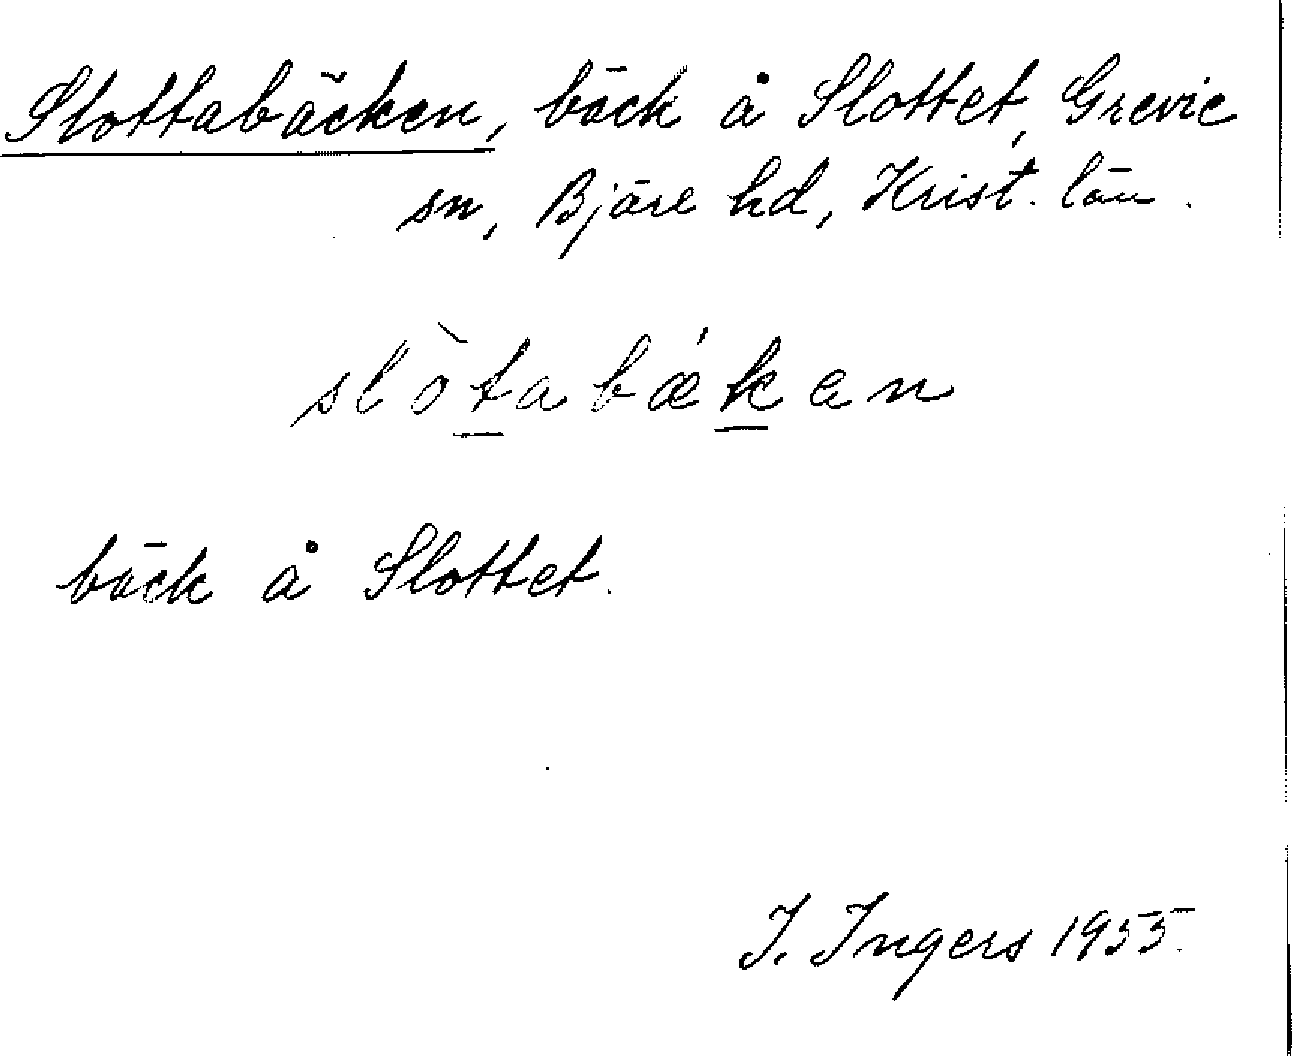 Slottabäcken, bäck å Slottet, Grevie
sn, Bjäre hd, Krist. län.
slòtabǽkan
bäck å Slottet.
I. Ingers 1955.